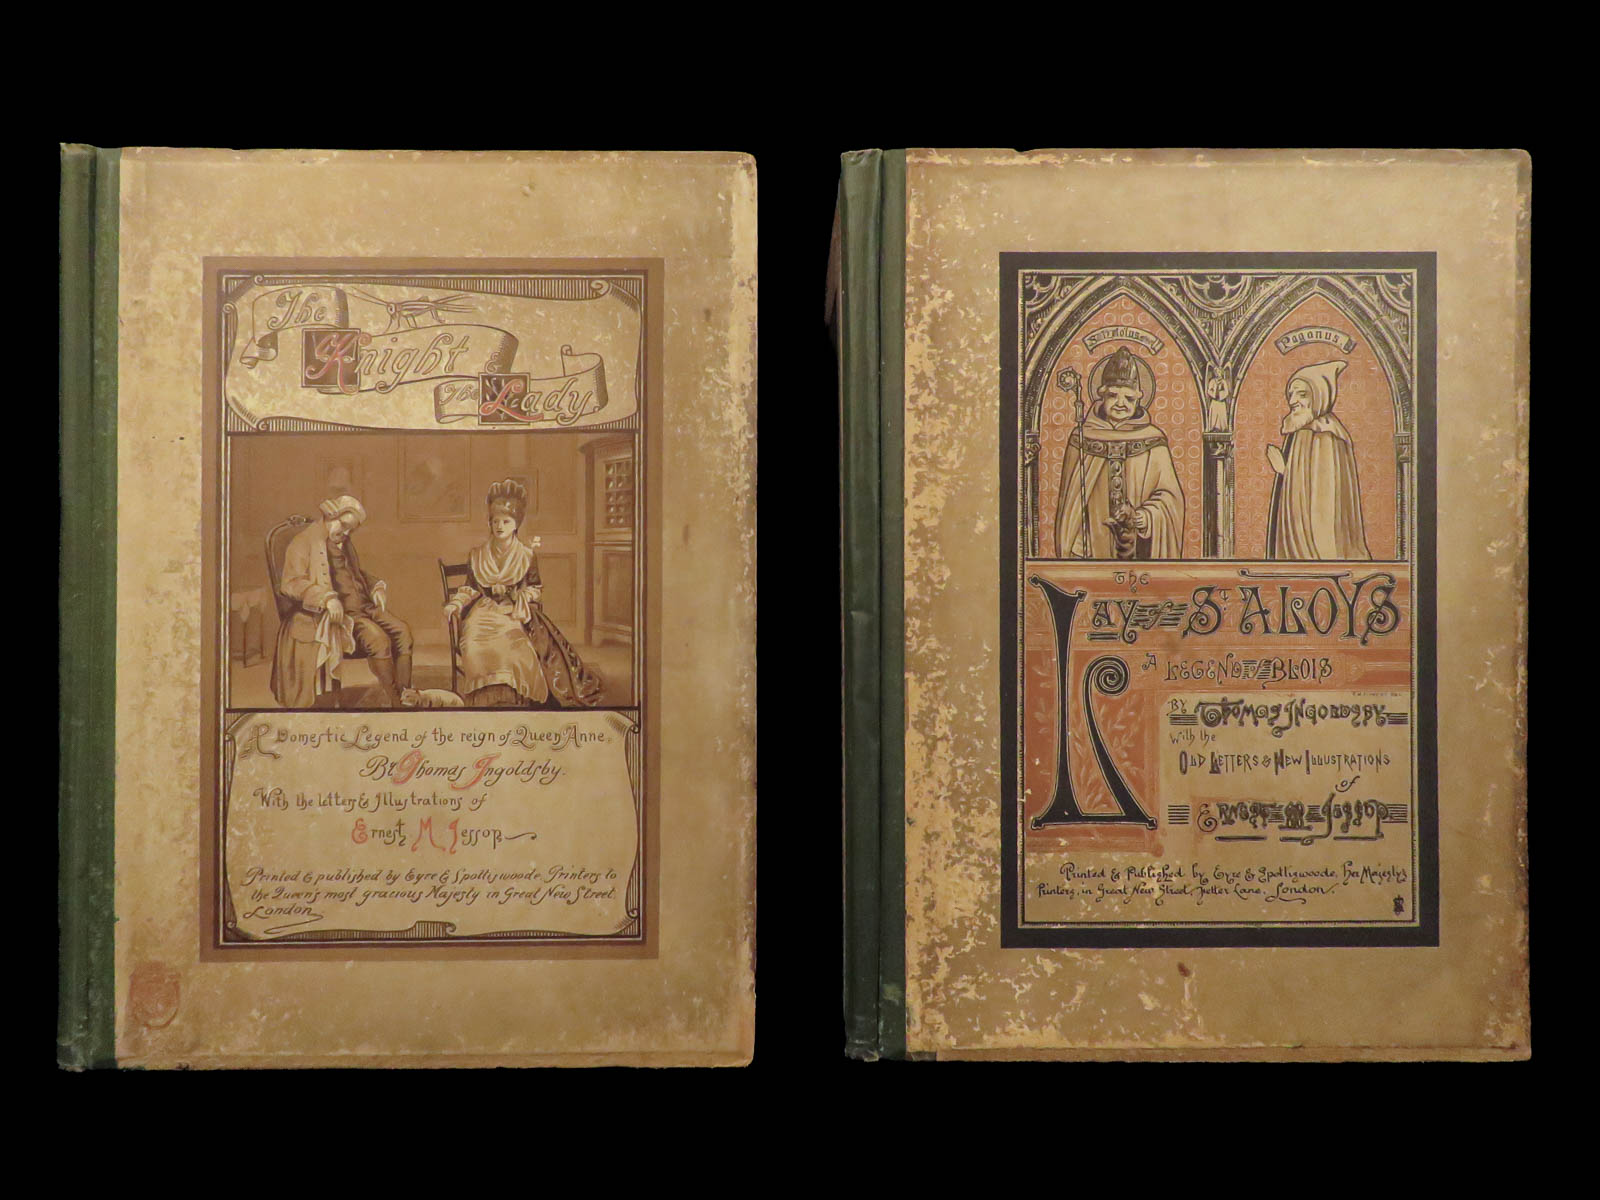 The
Knight
& The Lady.
A Domestic Legend of the reign of Queen Anne.
By Thomas Ingoldsby.
With the letters & Illustrations of
Ernest M Jessop
Printed & published by Eyre & Spottiswoode, Printers to
the Queen's most gracious Majesty in Great New Street.
London
Paganus.
The
Lay of St. Aloys
A Legend of Blois
By Thomas Ingoldsby
with the
Old Letters & New Illustrations
of
Ernest M Jessop
Printed & Published by Eyre & Spottiswoode, Her Majesty's
Printers, in Great New Street, Fetter Lane, London